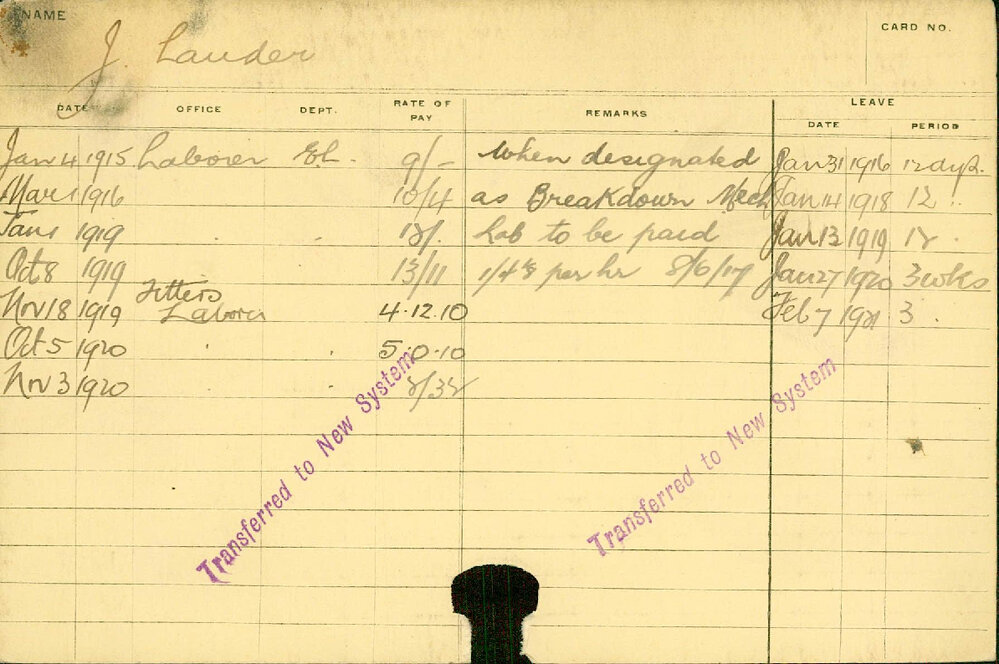 NAME
CARD NO.
J. Lauder
DATE OFFICE DEPT. RATE OF PAY REMARKS LEAVE
DATE PERIOD
Jan 4 1915 Laborer El. 9/- When designated Jan 31 1916 12 days.
Mar 1 1916 10/4 as Breakdown Mech Jan 14 1918 12 "
Jan 1 1919 " " 12/. Lab to be paid Jan 13 1919 12 "
Oct 8 1919 13/11 per hr 8/6/17 Jan 27 1920 3 wks
Nov 18 1919 Fitters Laborer 4.12.10 Feb 7 1921 3 "
Oct 5 1920 " " 5.0.10
Nov 3 1920 " "
Transferred to New System
Transferred to New System